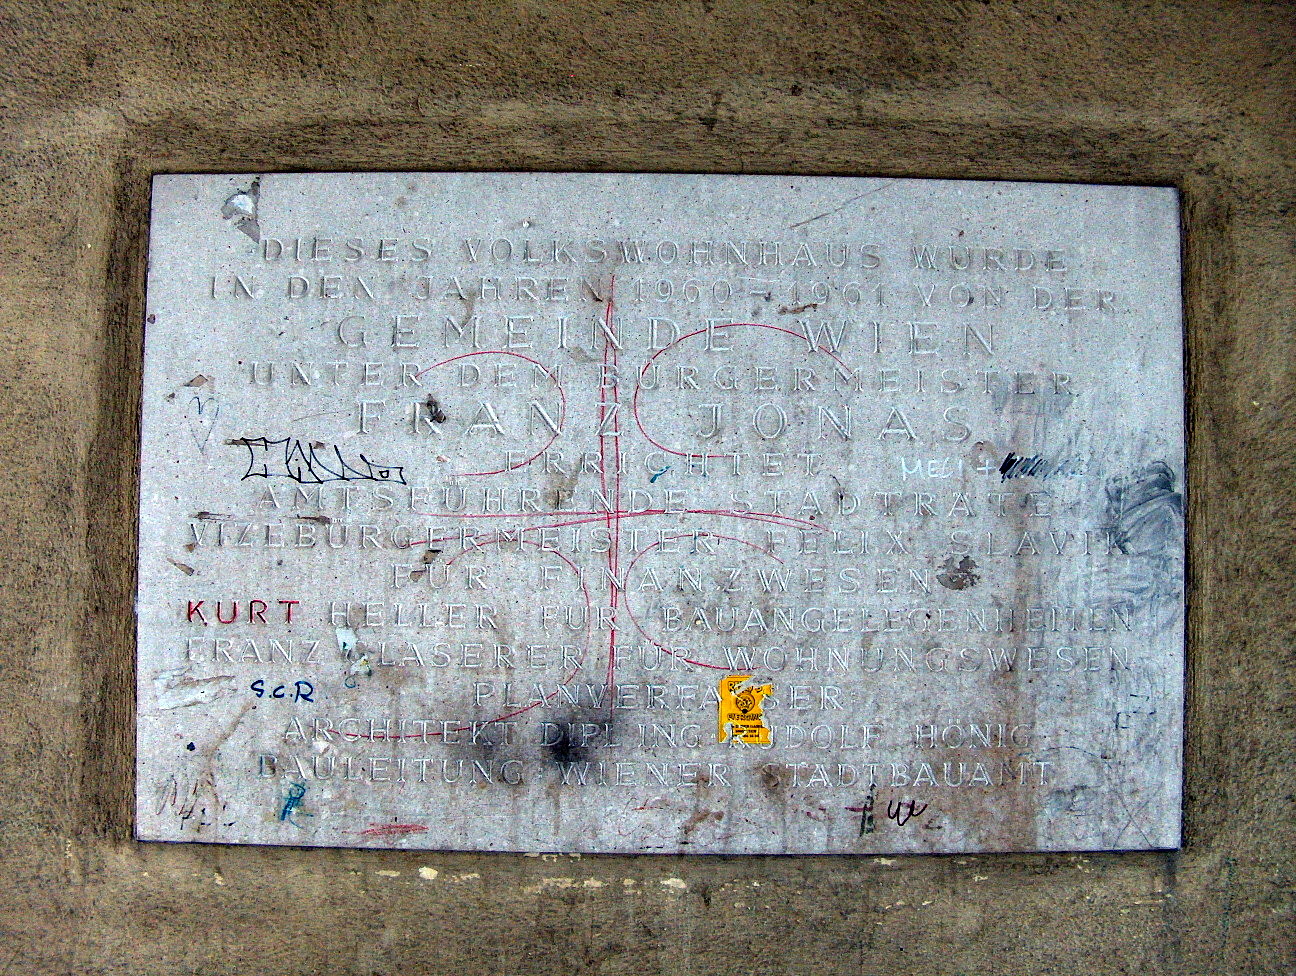 DIESES VOLKSWOHNHAUS WURDE
IN DEN JAHREN 1960-1961 VON DER
GEMEINDE WIEN
UNTER DEM BÜRGERMEISTER
FRANZ JONAS
ERRICHTET
MEGI +
AMTSFÜHRENDE STADTRÄTE
VIZEBÜRGERMEISTER FELIX SLAVIK
FÜR FINANZWESEN
KURT HELLER FÜR BAUANGELEGENHEITEN
FRANZ GLASERER FÜR WOHNUNGSWESEN
S.C.R
PLANVERFASSER
ARCHITEKT DIPL ING RUDOLF HÖNIG
BAULEITUNG WIENER STADTBAUAMT